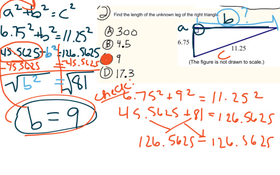 a² + b² = c²
6.75² + b² = 11.25²
45.5625 + b² = 126.5625
-45.5625 -45.5625
√b² = √81
b = 9
2 Find the length of the unknown leg of the right triangle.
A 300
B 4.5
9
D 17.3
a
b
?
6.75
11.25
c
(The figure is not drawn to scale.)
check:
6.75² + 9² = 11.25²
45.5625 + 81 = 126.5625
126.5625 = 126.5625